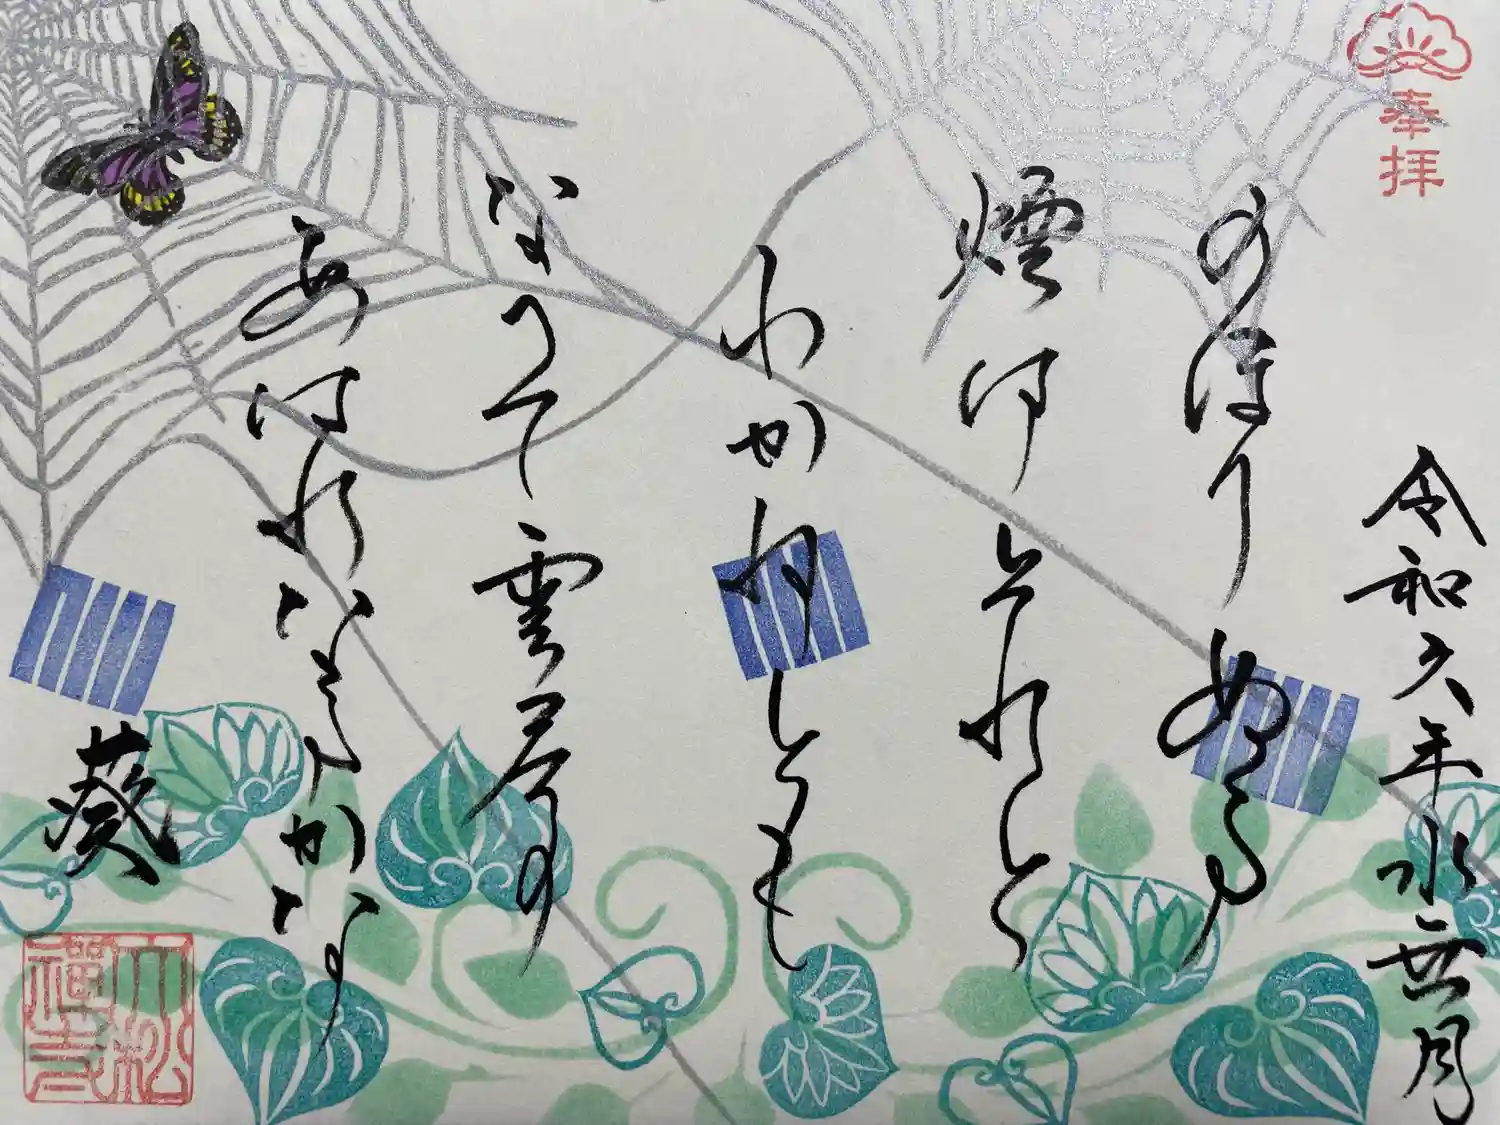 奉拝
令和六年水無月
のほりぬる
煙はそれと
わかねとも
なへて雲居の
あはれなるかな
葵
大松禪寺